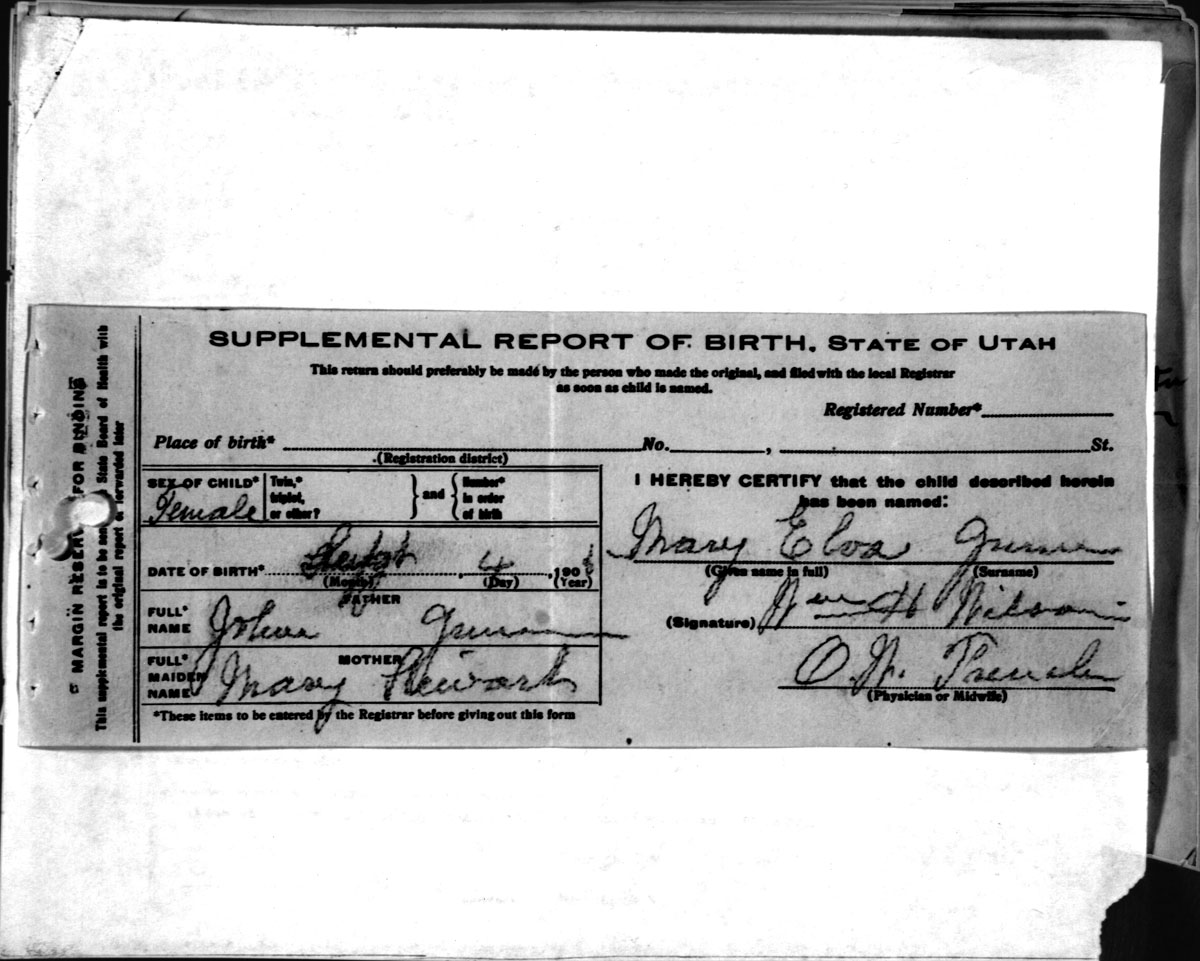 MARGIN RESERV FOR BINDING
This supplemental report is to be sen State Board of Health with
the original report or forwarded later
SUPPLEMENTAL REPORT OF BIRTH. STATE OF UTAH
This return should preferably be made by the person who made the original, and filed with the local Registrar
as soon as child is named.
Registered Number*
Place of birth* No. , St.
(Registration district)
SEX OF CHILD* Female
Twin,* triplet, or other?
and
Number* in order of birth
DATE OF BIRTH* 4, 190
(Month) (Day) (Year)
FATHER
FULL* NAME
MOTHER
FULL* MAIDEN NAME Mary Stewart
*These items to be entered by the Registrar before giving out this form
I HEREBY CERTIFY that the child described herein
has been named:
Mary Elva
(Given name in full) (Surname)
(Signature) Wm H Wilson
(Physician or Midwife)